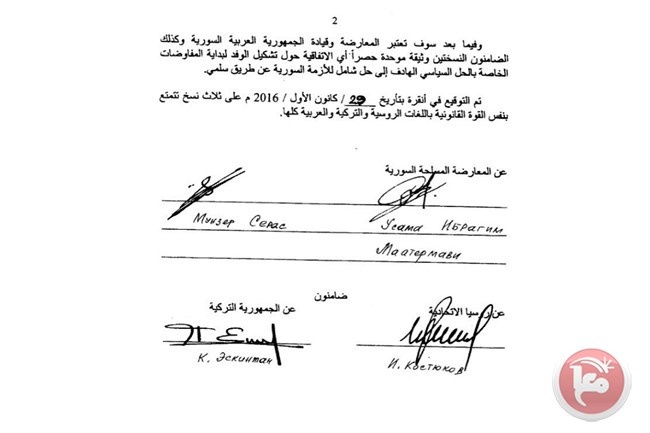 2
وفيما بعد سوف تعتبر المعارضة وقيادة الجمهورية العربية السورية وكذلك
الضامنون النسختين وثيقة موحدة حصراً أي الاتفاقية حول تشكيل الوفد لبداية المفاوضات
الخاصة بالحل السياسي الهادف إلى حل شامل للأزمة السورية عن طريق سلمي.
تم التوقيع في أنقرة بتأريخ 29 / كانون الأول / 2016 م على ثلاث نسخ تتمتع
بنفس القوة القانونية باللغات الروسية والتركية والعربية كلها.
عن المعارضة المسلحة السورية
Мунзер Серас
Усама Ибрагим
Маатермави
ضامنون
عن روسيا الاتحادية
عن الجمهورية التركية
И. Костюков
К. Эскинтан
معا